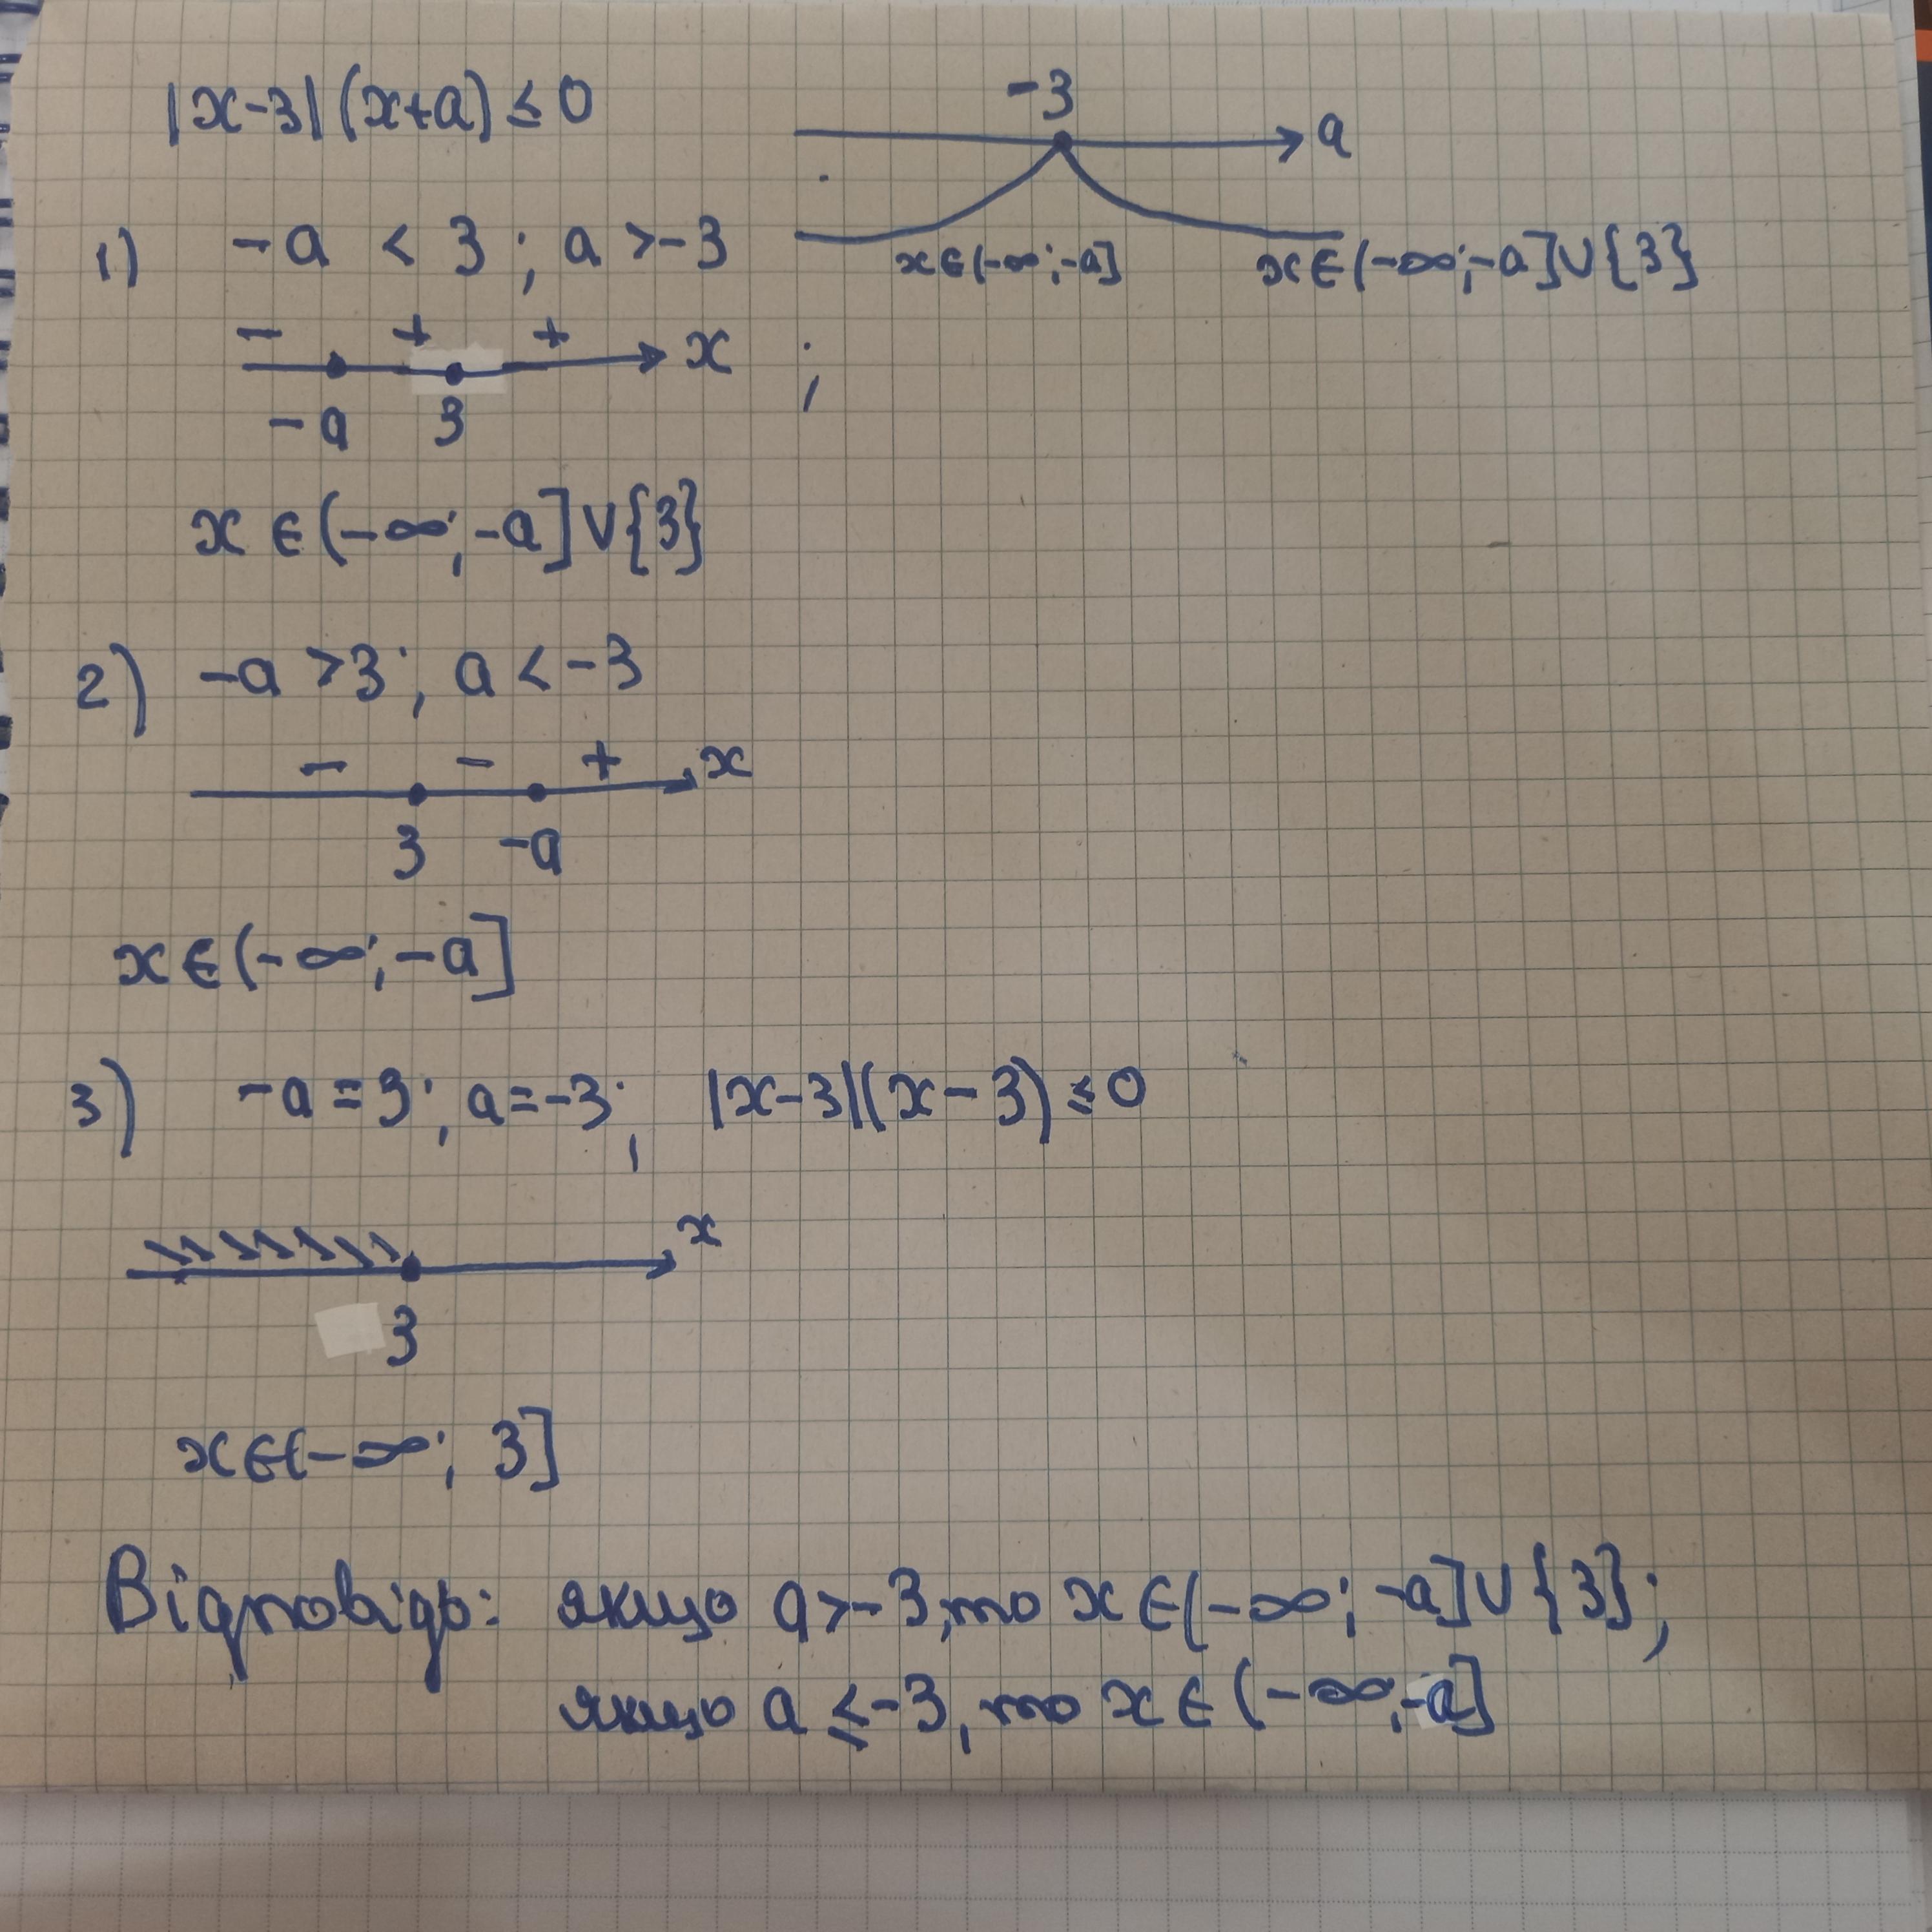 |x-3|(x+a) ≤ 0
-3
a
x∈(-∞;-a]
x∈(-∞;-a]∪{3}
1) -a < 3; a >-3
- + + x ;
-a 3
x ∈(-∞;-a]∪{3}
2) -a >3; a <-3
- - + x
3 -a
x∈(-∞;-a]
3) -a=3; a=-3; |x-3|(x-3) ≤0
x
3
x∈(-∞; 3]
Відповідь: якщо a>-3,то x∈(-∞; -a]∪{3};
якщо a ≤-3, то x∈(-∞;-a]